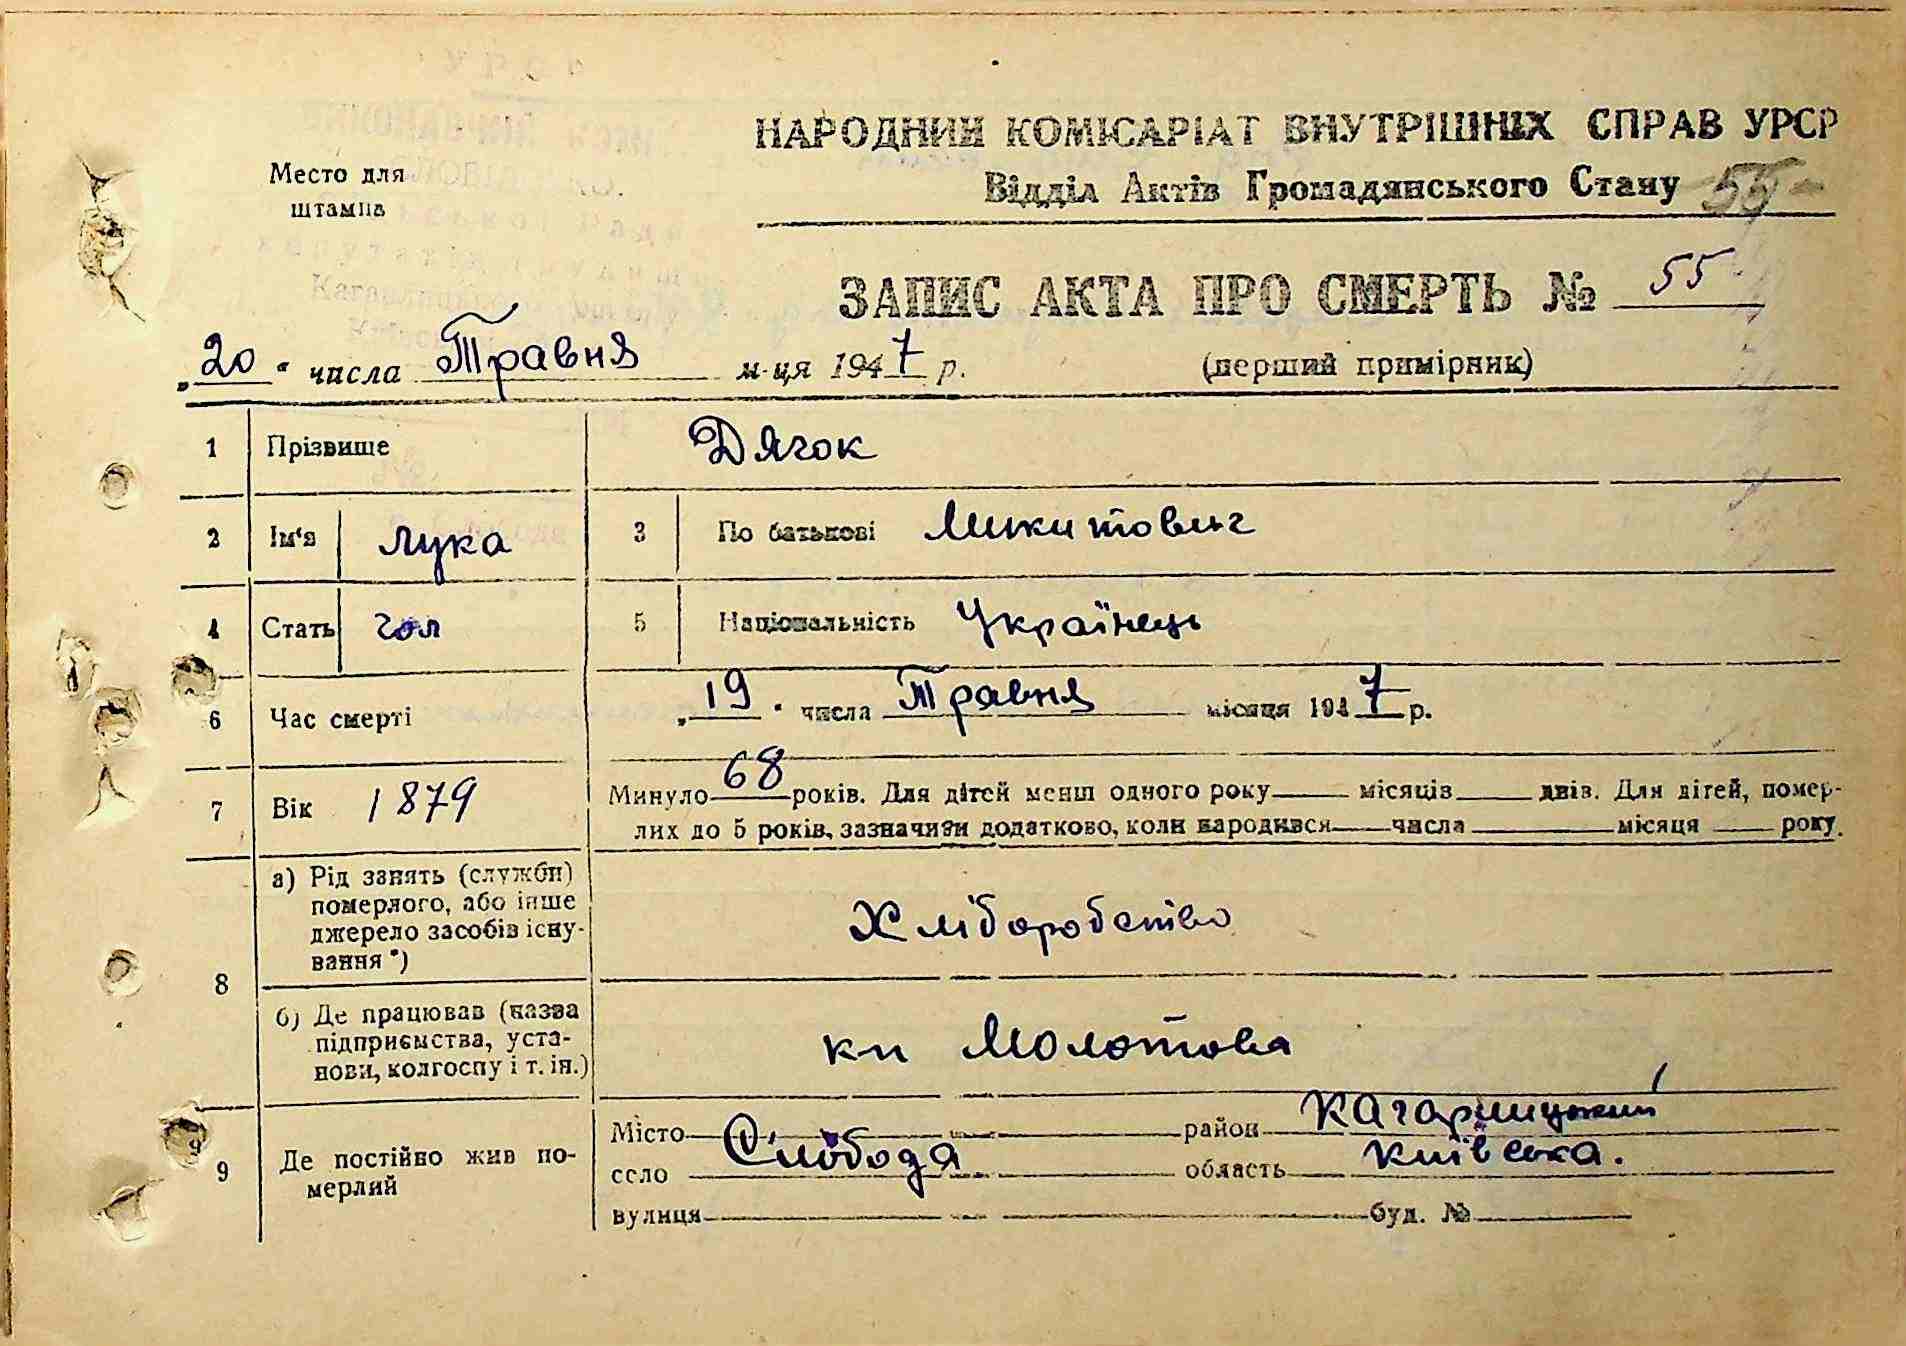 НАРОДНИЙ КОМІСАРІАТ ВНУТРІШНІХ СПРАВ УРСР
Место для
штампа
Відділ Актів Громадянського Стану 55
ЗАПИС АКТА ПРО СМЕРТЬ № 55
„20“ числа Травня м-ця 1947 р. (перший примірник)
1 Прізвище Дячок
2 Ім'я Лука 3 По батькові Микитович
4 Стать чол 5 Національність Українець
6 Час смерті „19“ числа Травня місяця 1947 р.
7 Вік 1879 Минуло 68 років. Для дітей менш одного року місяців днів. Для дітей, помер-
лих до 5 років, зазначити додатково, коли народився числа місяця року.
8 а) Рід занять (служби)
померлого, або інше
джерело засобів існу-
вання *)
Хліборобство
б) Де працював (назва
підприємства, уста-
нови, колгоспу і т. ін.)
кп Молотова
9 Де постійно жив по-
мерлий
Місто район Кагарлицький
село Слобода область Київська.
вулиця буд. №